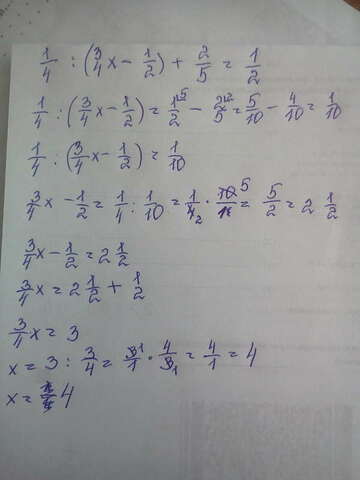 1/4 : (3/4 x - 1/2) + 2/5 = 1/2
1/4 : (3/4 x - 1/2) = 1⁵/2 - 2²/5 = 5/10 - 4/10 = 1/10
1/4 : (3/4 x - 1/2) = 1/10
3/4 x - 1/2 = 1/4 : 1/10 = 1/4₂ · 10⁵/1 = 5/2 = 2 1/2
3/4 x - 1/2 = 2 1/2
3/4 x = 2 1/2 + 1/2
3/4 x = 3
x = 3 : 3/4 = 3¹/1 · 4/3₁ = 4/1 = 4
x = 4